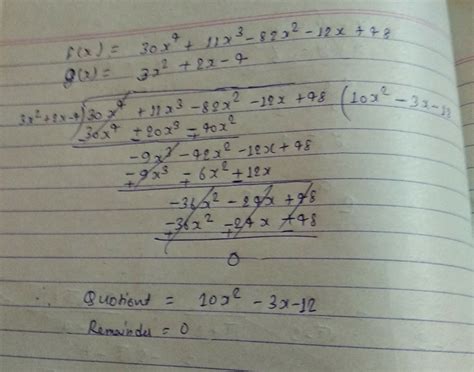 f(x) = 30x⁴ + 11x³ - 82x² - 12x + 48
g(x) = 3x² + 2x - 4
3x² + 2x - 4) 30x⁴ + 11x³ - 82x² - 12x + 48 (10x² - 3x - 12
30x⁴ ± 20x³ ∓ 40x²
-9x³ - 42x² - 12x + 48
-9x³ ∓ 6x² ± 12x
-36x² - 24x + 48
-36x² - 24x + 48
0
∴ Quotient = 10x² - 3x - 12
Remainder = 0